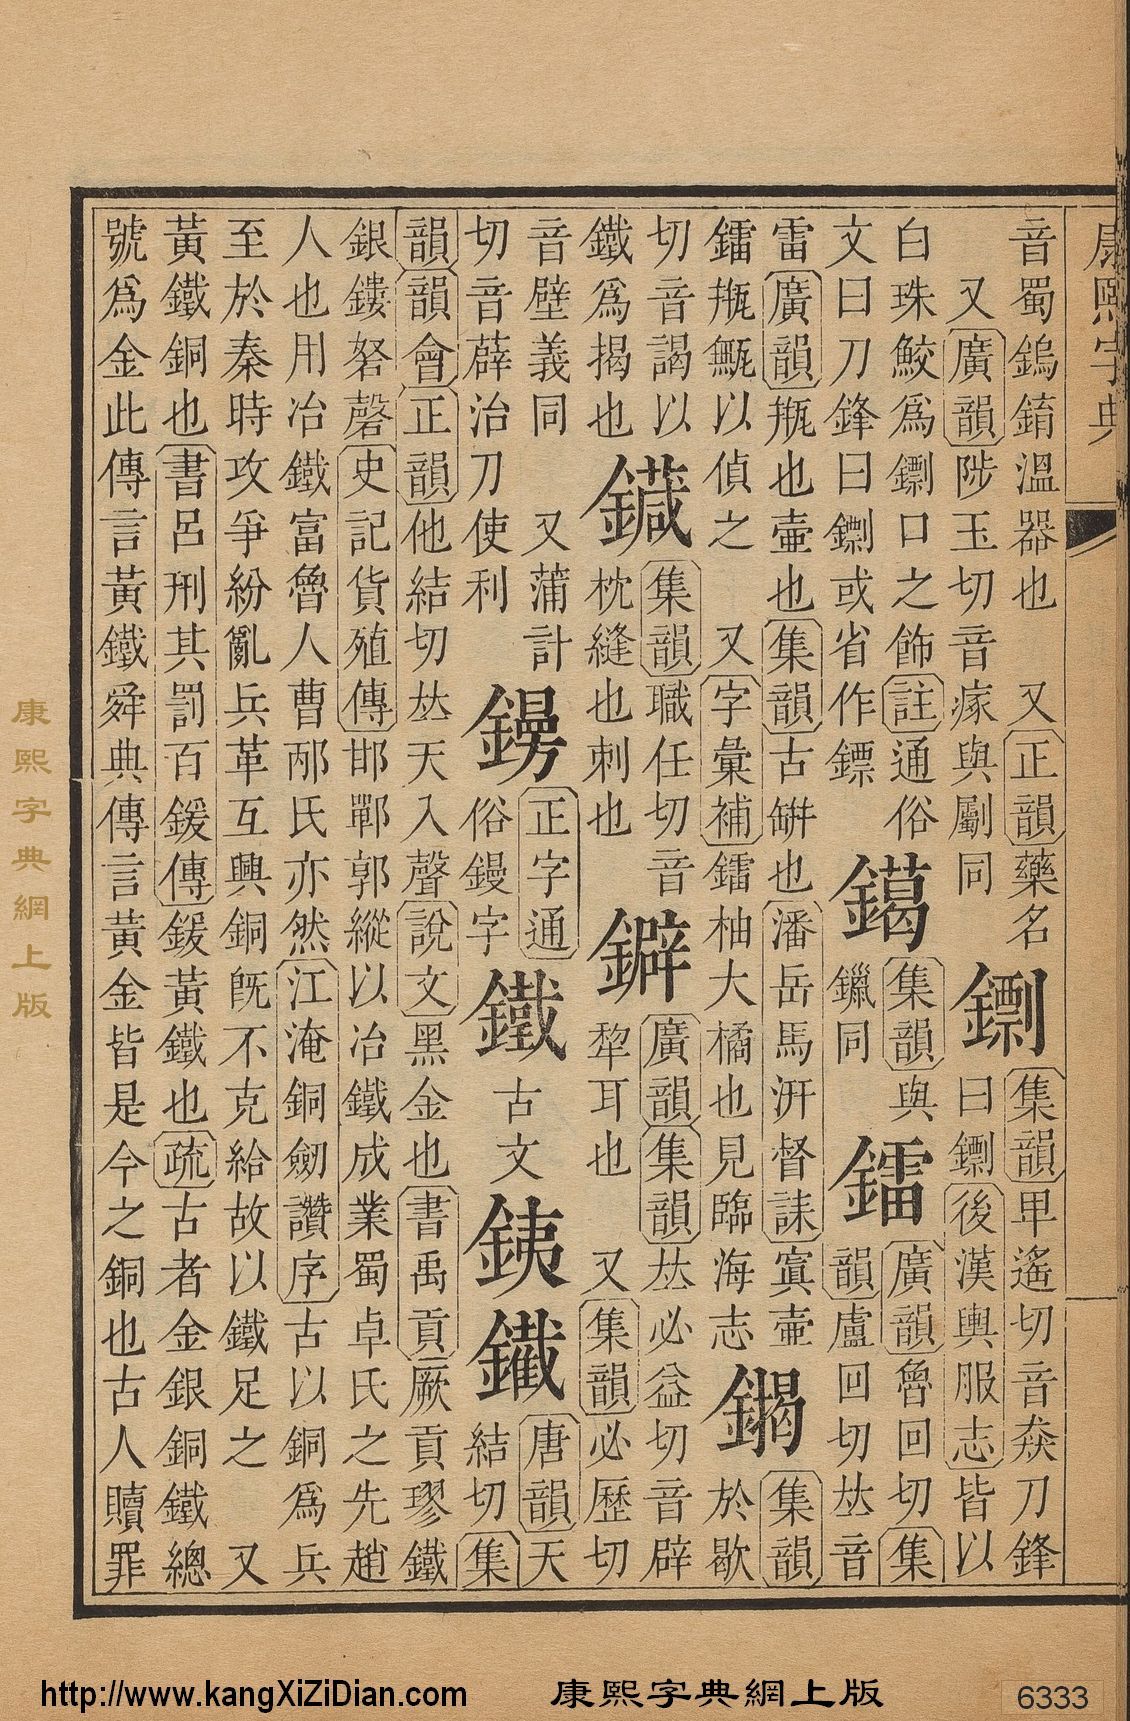 康熙字典
音蜀鎢錥溫器也　又正韻藥名　鏢集韻卑遙切音猋刀鋒
又廣韻陟玉切音瘃與劚同　曰鏢後漢輿服志皆以
白珠鮫爲鏢口之飾註通俗　集韻與　廣韻魯回切集
文曰刀鋒曰鏢或省作鏢　鑉鑞同　鐳韻盧回切𠀤音
雷廣韻瓶也壷也集韻古缾也潘岳馬汧督誄寘壷　集韻
鐳瓶甒以偵之　又字彙補鐳柚大橘也見臨海志　鍻於歇
切音謁以　集韻職任切音　廣韻集韻𠀤必益切音辟
鐵爲揭也　鍼枕縫也刺也　鐴犂耳也　又集韻必歷切
音壁義同　又蒲計　正字通　古　唐韻天
切音薜治刀使利　鏝俗鏝字　鐵文　銕　鐵結切集
韻韻會正韻他結切𠀤天入聲說文黑金也書禹貢厥貢璆鐵
銀鏤砮磬史記貨殖傳邯鄲郭縱以冶鐵成業蜀卓氏之先趙
人也用冶鐵富魯人曹邴氏亦然江淹銅劒讚序古以銅爲兵
至於秦時攻爭紛亂兵革互興銅旣不克給故以鐵足之　又
黃鐵銅也書呂刑其罰百鍰傳鍰黃鐵也疏古者金銀銅鐵總
號爲金此傳言黃鐵舜典傳言黃金皆是今之銅也古人贖罪
康熙字典網上版
http://www.kangXiZiDian.com
康熙字典網上版
6333